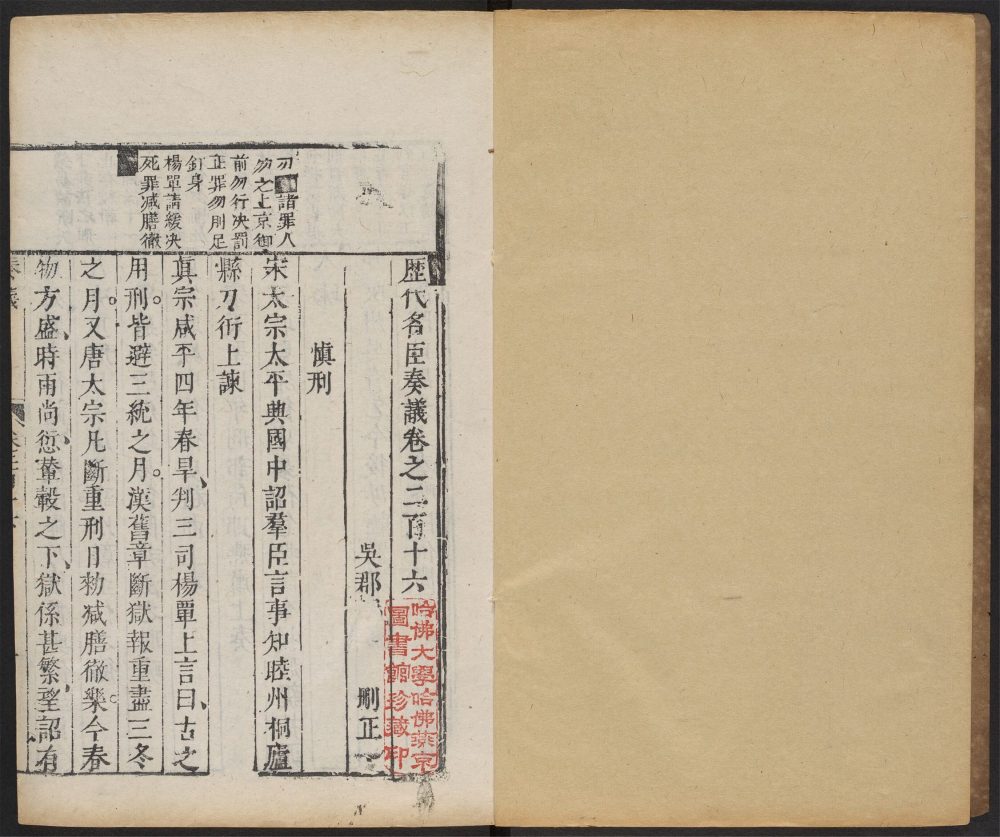 歷代名臣奏議卷之二百十六
吳郡 刪正
慎刑
宋太宗太平興國中詔羣臣言事知睦州桐廬
縣刁衎上諫
真宗咸平四年春旱、判三司楊覃上言曰、古之
用刑。皆避三統之月。漢舊章斷獄報重盡三冬
之月。又唐太宗凡斷重刑日勑減膳徹樂。今春
物方盛、時雨尚愆、輦轂之下、獄係甚繁、望詔有
諸罪人
勿之上京御
前勿行决罰
正罪勿刖足
釘身
楊覃請緩决
死罪減膳徹
奏議
哈佛大學哈佛燕京
圖書館珍藏印